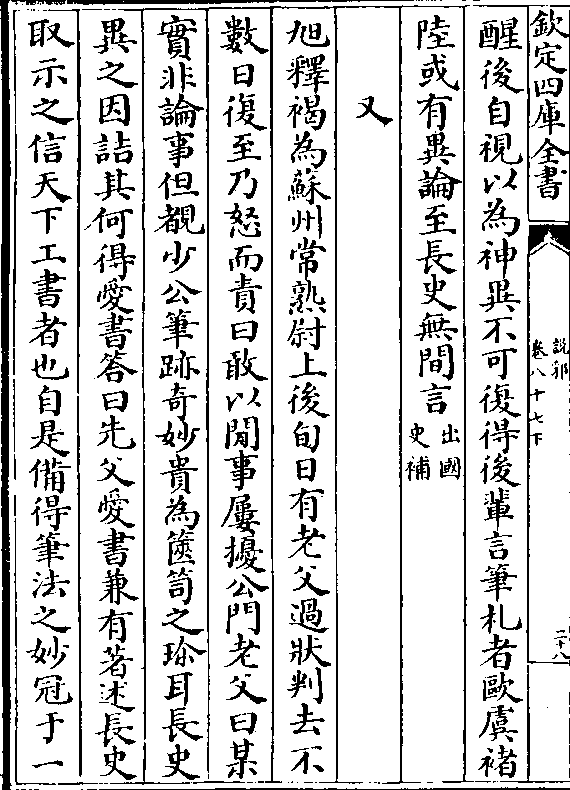 欽定四庫全書
說郛
卷八十七下
二十八
醒後自視以為神異不可復得後輩言筆札者歐虞褚
陸或有異論至長史無間言出國史補
又
旭釋褐為蘇州常熟尉上後旬日有老父過狀判去不
數日復至乃怒而責曰敢以閒事屢擾公門老父曰某
實非論事但覩少公筆跡奇妙貴為篋笥之珎耳長史
異之因詰其何得愛書答曰先父愛書兼有著述長史
取示之信天下工書者也自是備得筆法之妙冠于一